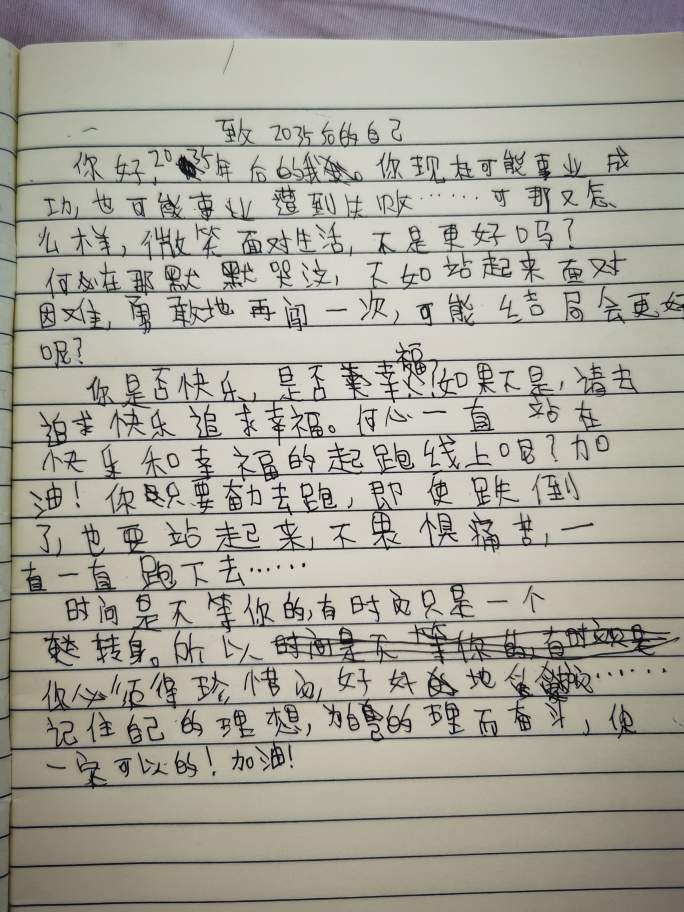 致2035后的自己
你好,2035年后的我。你现在可能事业成
功,也可能事业遭到失败……可那又怎
么样,微笑面对生活,不是更好吗?
何必在那默默哭泣,不如站起来面对
困难,勇敢地再闯一次,可能结局会更好
呢?
你是否快乐,是否幸福?如果不是,请去
追求快乐追求幸福。何心一直站在
快乐和幸福的起跑线上呢?加
油!你只要奋力去跑,即便跌倒
了,也要站起来,不畏惧痛苦,一
直一直跑下去……
时间是不等你的,有时只是一个
转身。所以
你必须得珍惜,好好地……
记住自己的理想,为的理而奋斗,你
一定可以的!加油!